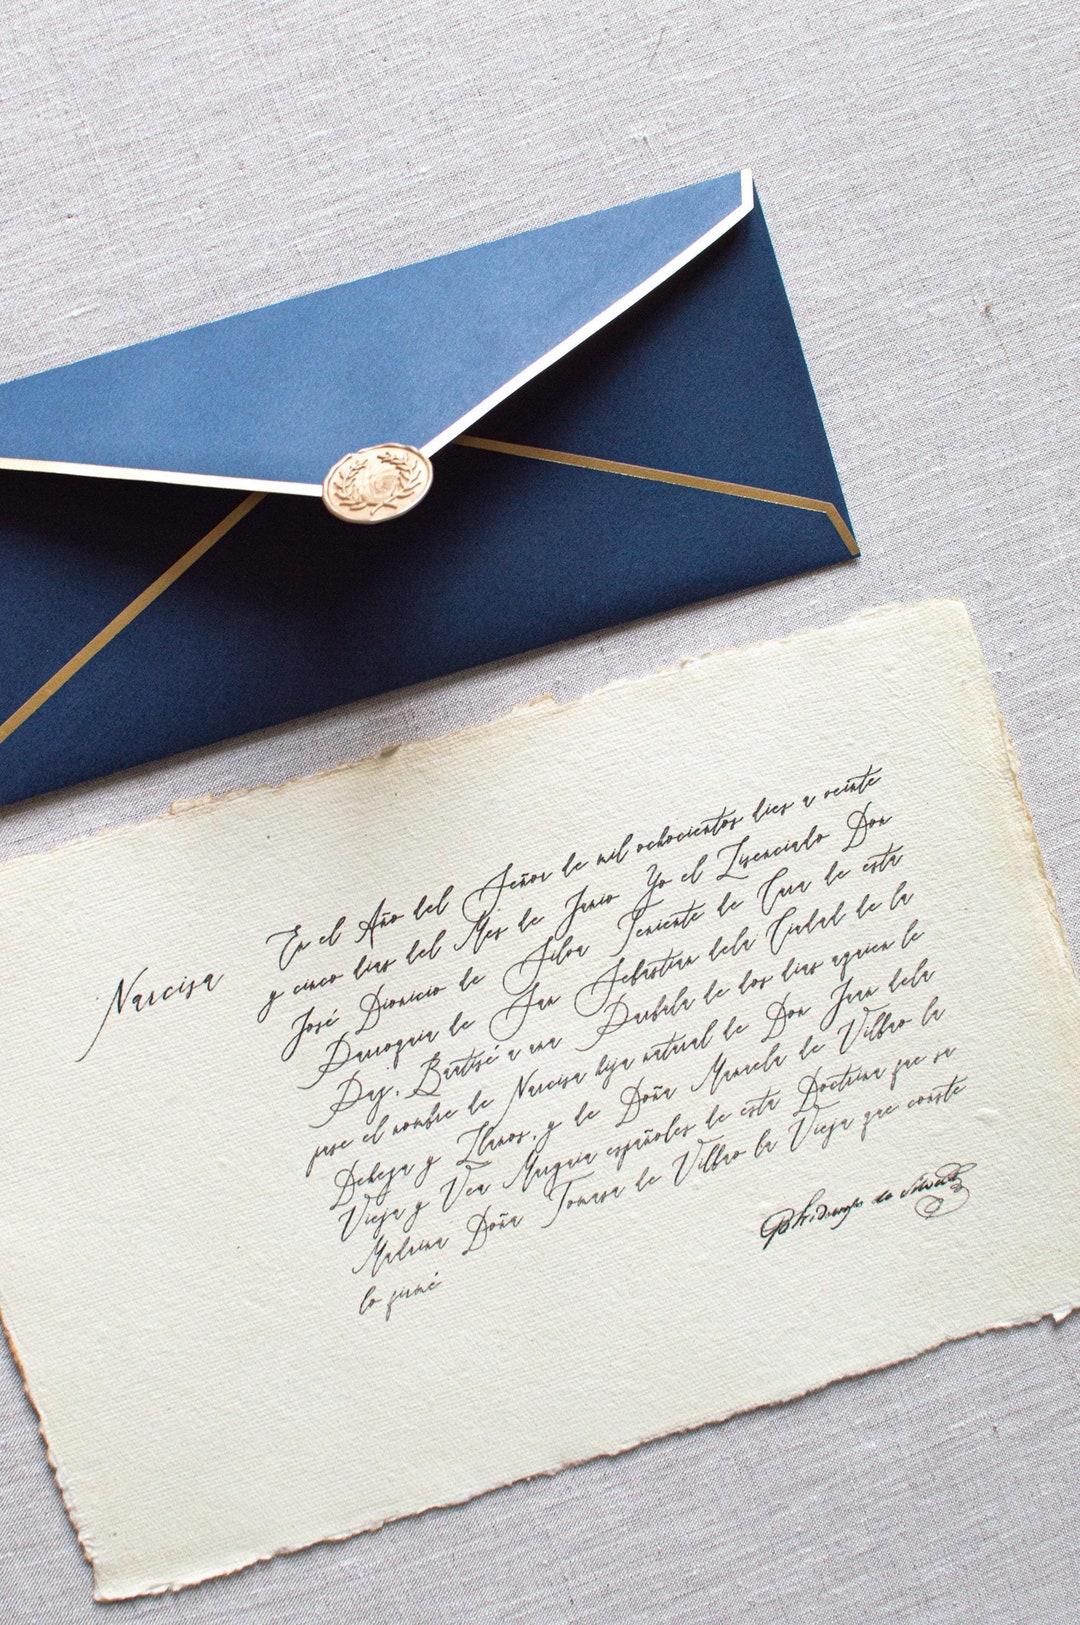 Narcisa
En el Año del Señor de mil ochocientos dies a veinte
y cinco dias del Mes de Junio Yo el Lisenciado Don
José Dionicio de Silva Teniente de Cura de esta
Parroquia de San Sebastian dela Ciudad de la
Paz, Bautisé a una Parbula de dos dias aquien le
puse el nombre de Narcisa hija natural de Don Juan dela
Deheza y Llanos, y de Doña Manuela de Vilbao la
Vieja y Vea Murguia españoles de esta Doctrina fue su
Madrina Doña Tomasa de Vilbao la Vieja que conste
lo firmé